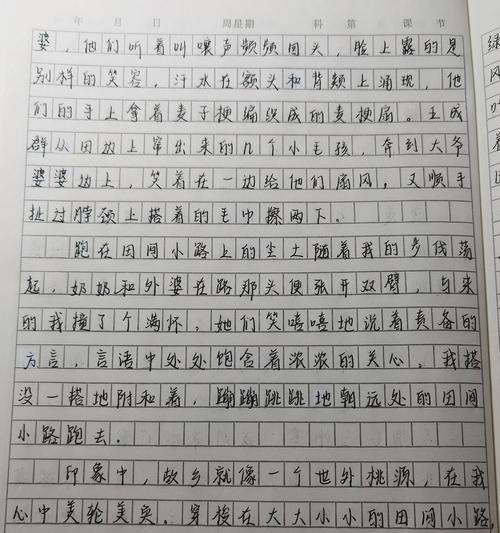 年 月 日 周星期 科 第 课 节
婆，他们听着叫嚷声频频回头，脸上露的是
别样的笑容，汗水在额头和背颊上涌现，他
们的手上拿着麦子梗编织成的麦梗扇。王成
群从田边上窜出来的几个小毛孩，奔到大爷
婆婆边上，笑着在一边给他们扇风，又顺手
扯过脖颈上搭着的毛巾擦两下。
跑在田间小路上的尘土随着我的步伐荡
起，奶奶和外婆在路那头便张开双臂，与来
的我撞了个满怀。她们笑嘻嘻地说着责备的
方言，言语中处处饱含着浓浓的关心。我搭
没一搭地附和着，蹦蹦跳跳地朝远处的田间
小路跑去。
印象中，故乡就像一个世外桃源，在我
心中美轮美奂。穿梭在大大小小的田间小路，